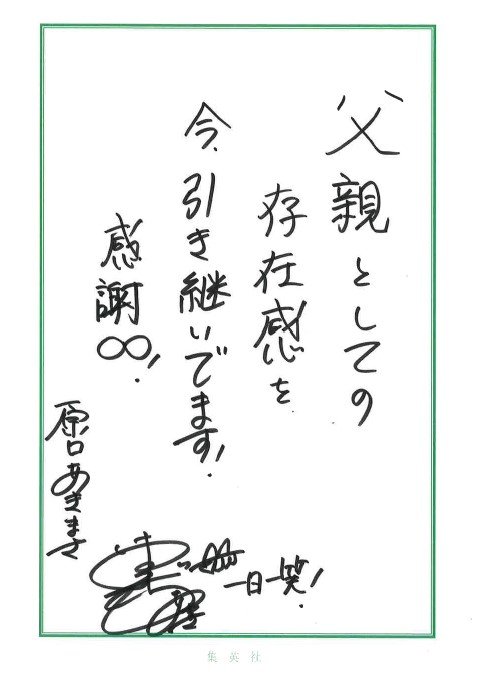 父親としての
存在感を
今、引き継いでます!
感謝∞!
原口あきまさ
一日一笑!
集英社